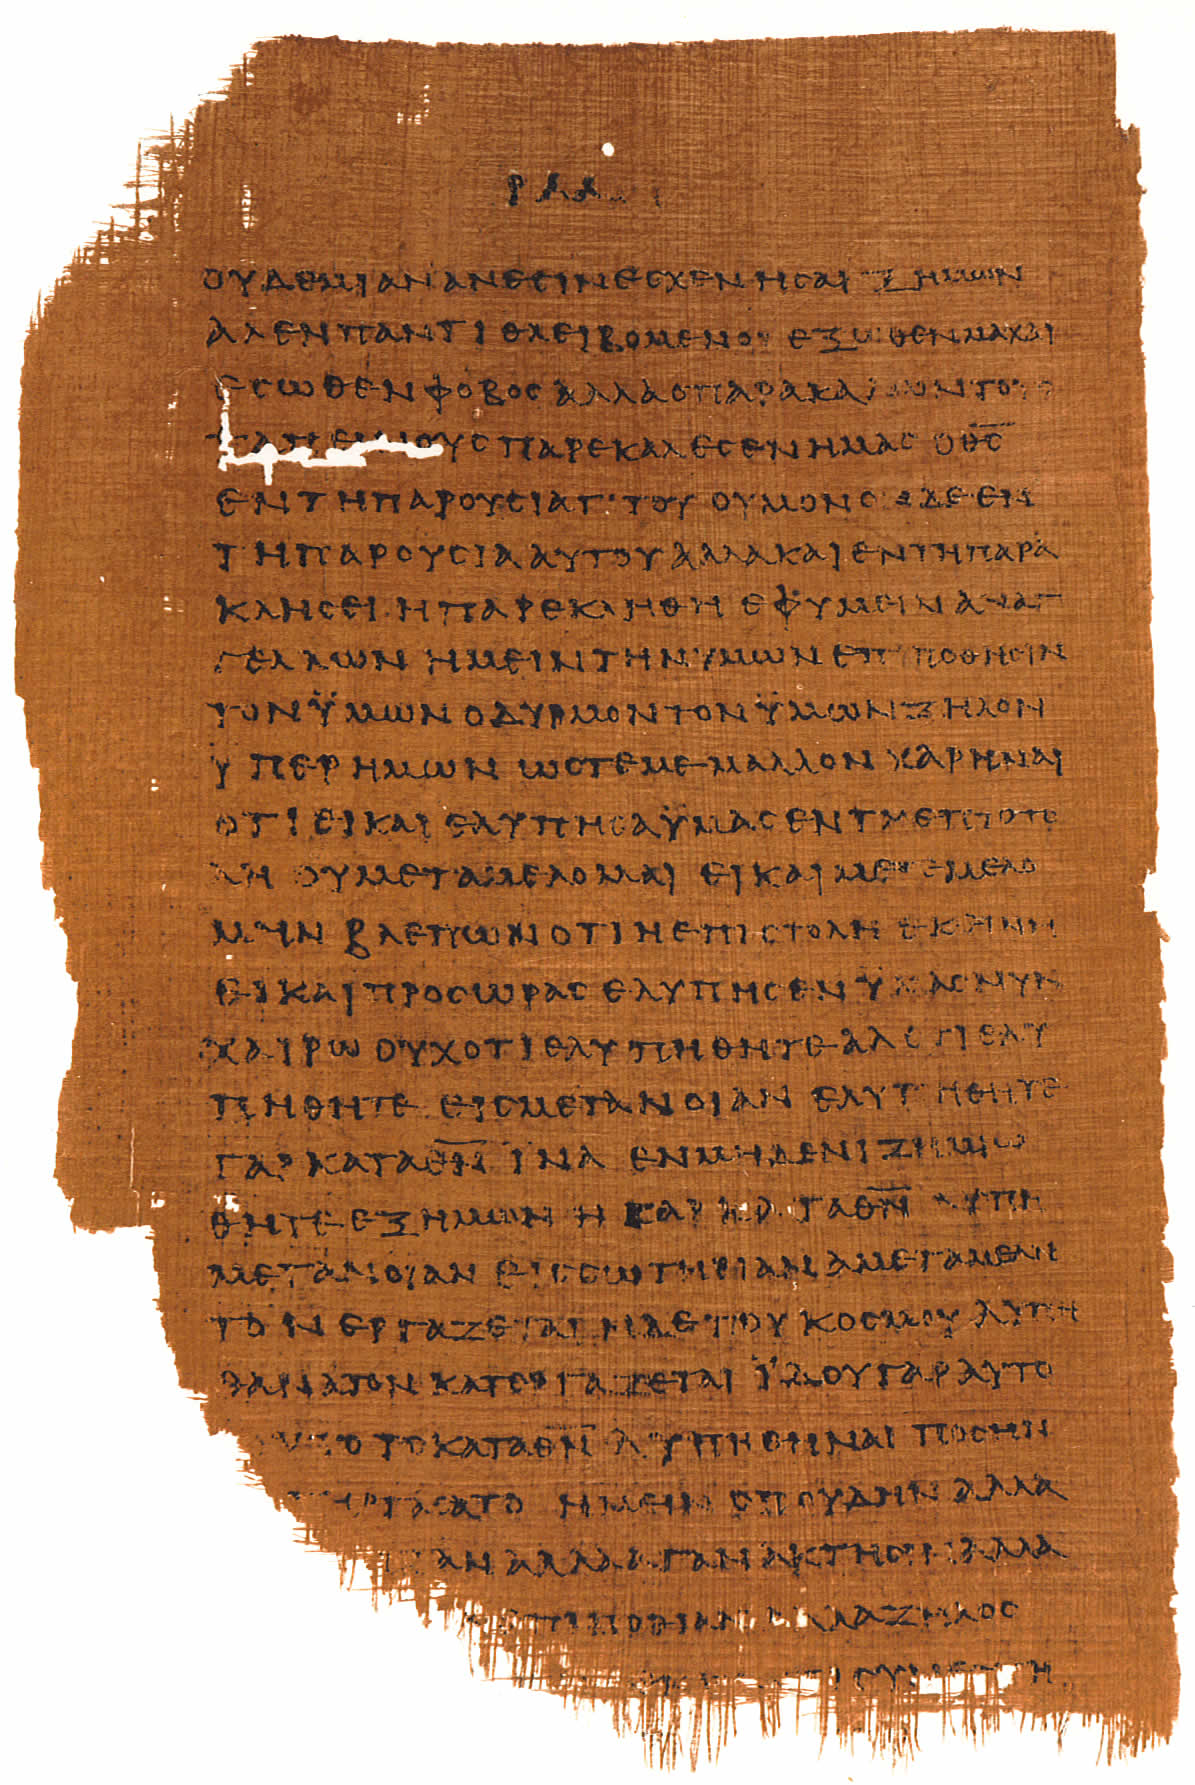 ΟΥΔΕΜΙΑΝ ΑΝΕΣΙΝ ΕΣΧΕΝ Η ΣΑΡΞ ΗΜΩΝ
ΑΛ ΕΝ ΠΑΝΤΙ ΘΛΕΙΒΟΜΕΝΟΙ ΕΞΩΘΕΝ ΜΑΧΑΙ
ΕΣΩΘΕΝ ΦΟΒΟΣ ΑΛΛΑ Ο ΠΑΡΑΚΑΛΩΝ ΤΟΥΣ
ΤΑΠΕΙΝΟΥΣ ΠΑΡΕΚΑΛΕΣΕΝ ΗΜΑΣ Ο Θ̅Σ̅
ΕΝ ΤΗ ΠΑΡΟΥΣΙΑ ΤΙΤΟΥ ΟΥ ΜΟΝΟΝ ΔΕ ΕΝ
ΤΗ ΠΑΡΟΥΣΙΑ ΑΥΤΟΥ ΑΛΛΑ ΚΑΙ ΕΝ ΤΗ ΠΑΡΑ
ΚΛΗΣΕΙ Η ΠΑΡΕΚΛΗΘΗ ΕΦ ΥΜΕΙΝ ΑΝΑΓ
ΓΕΛΛΩΝ ΗΜΕΙΝ ΤΗΝ ΥΜΩΝ ΕΠΙΠΟΘΗΣΙΝ
ΤΟΝ ΫΜΩΝ ΟΔΥΡΜΟΝ ΤΟΝ ΫΜΩΝ ΖΗΛΟΝ
ΫΠΕΡ ΗΜΩΝ ΩΣΤΕ ΜΕ ΜΑΛΛΟΝ ΧΑΡΗΝΑΙ
ΟΤΙ ΕΙ ΚΑΙ ΕΛΥΠΗΣΑ ΫΜΑΣ ΕΝ Τ
ΛΗ ΟΥ ΜΕΤΑΜΕΛΟΜΑΙ ΕΙ ΚΑΙ ΜΕΤΕΜΕΛΟ
ΜΗΝ ΒΛΕΠΩΝ ΟΤΙ Η ΕΠΙΣΤΟΛΗ ΕΚΕΙΝΗ
ΕΙ ΚΑΙ ΠΡΟΣ ΩΡΑΣ ΕΛΥΠΗΣΕΝ ΫΜΑΣ ΝΥΝ
ΧΑΙΡΩ ΟΥΧ ΟΤΙ ΕΛΥΠΗΘΗΤΕ ΑΛ ΟΤΙ ΕΛΥ
ΠΗΘΗΤΕ ΕΙΣ ΜΕΤΑΝΟΙΑΝ ΕΛΥΠΗΘΗΤΕ
ΓΑΡ ΚΑΤΑ Θ̅Ν̅ ΙΝΑ ΕΝ ΜΗΔΕΝΙ ΖΗΜΙΩ
ΘΗΤΕ ΕΞ ΗΜΩΝ Η ΓΑΡ ΚΑΤΑ Θ̅Ν̅ ΛΥΠΗ
ΜΕΤΑΝΟΙΑΝ ΕΙΣ ΣΩΤΗΡΙΑΝ ΑΜΕΤΑΜΕΛΗ
ΤΟΝ ΕΡΓΑΖΕΤΑΙ Η ΔΕ ΤΟΥ ΚΟΣΜΟΥ ΛΥΠΗ
ΘΑΝΑΤΟΝ ΚΑΤΕΡΓΑΖΕΤΑΙ ΪΔΟΥ ΓΑΡ ΑΥΤΟ
ΤΟΥΤΟ ΤΟ ΚΑΤΑ Θ̅Ν̅ ΛΥΠΗΘΗΝΑΙ ΠΟΣΗΝ
ΗΜΕΙΝ ΣΠΟΥΔΗΝ ΑΛΛΑ
ΑΛΛΑ ΑΓΑΝΑΚΤΗΣΙΝ ΑΛΛΑ
ΕΠΙΠΟΘΙΑΝ ΑΛΛΑ ΖΗΛΟΣ